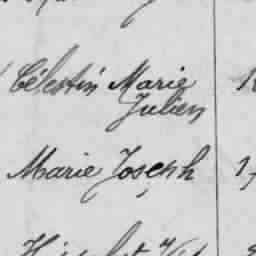 Célestin Marie
Julien
Marie Joseph